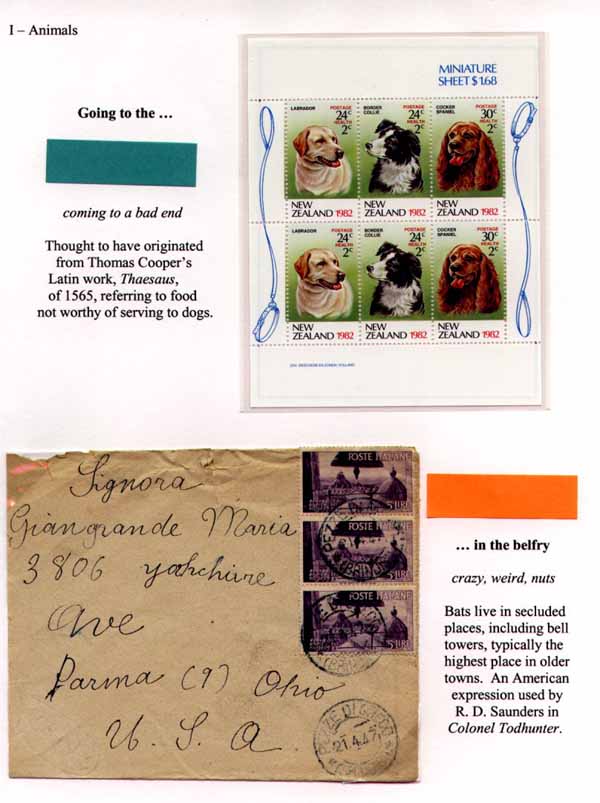 I – Animals
Going to the ...
coming to a bad end
Thought to have originated
from Thomas Cooper's
Latin work, Thaesaus,
of 1565, referring to food
not worthy of serving to dogs.
MINIATURE
SHEET $1.68
LABRADOR
POSTAGE
24c
HEALTH
2c
NEW
ZEALAND 1982
BORDER
COLLIE
POSTAGE
24c
HEALTH
2c
NEW
ZEALAND 1982
COCKER
SPANIEL
POSTAGE
30c
HEALTH
2c
NEW
ZEALAND 1982
LABRADOR
POSTAGE
24c
HEALTH
2c
NEW
ZEALAND 1982
BORDER
COLLIE
POSTAGE
24c
HEALTH
2c
NEW
ZEALAND 1982
COCKER
SPANIEL
POSTAGE
30c
HEALTH
2c
NEW
ZEALAND 1982
Signora
Giangrande Maria
3806 yorkchire
Ave
Parma (9) Ohio
U. S. A.
POSTE ITALIANE
5 LIRE
POSTE ITALIANE
5 LIRE
POSTE ITALIANE
5 LIRE
21.4.47
... in the belfry
crazy, weird, nuts
Bats live in secluded
places, including bell
towers, typically the
highest place in older
towns. An American
expression used by
R. D. Saunders in
Colonel Todhunter.